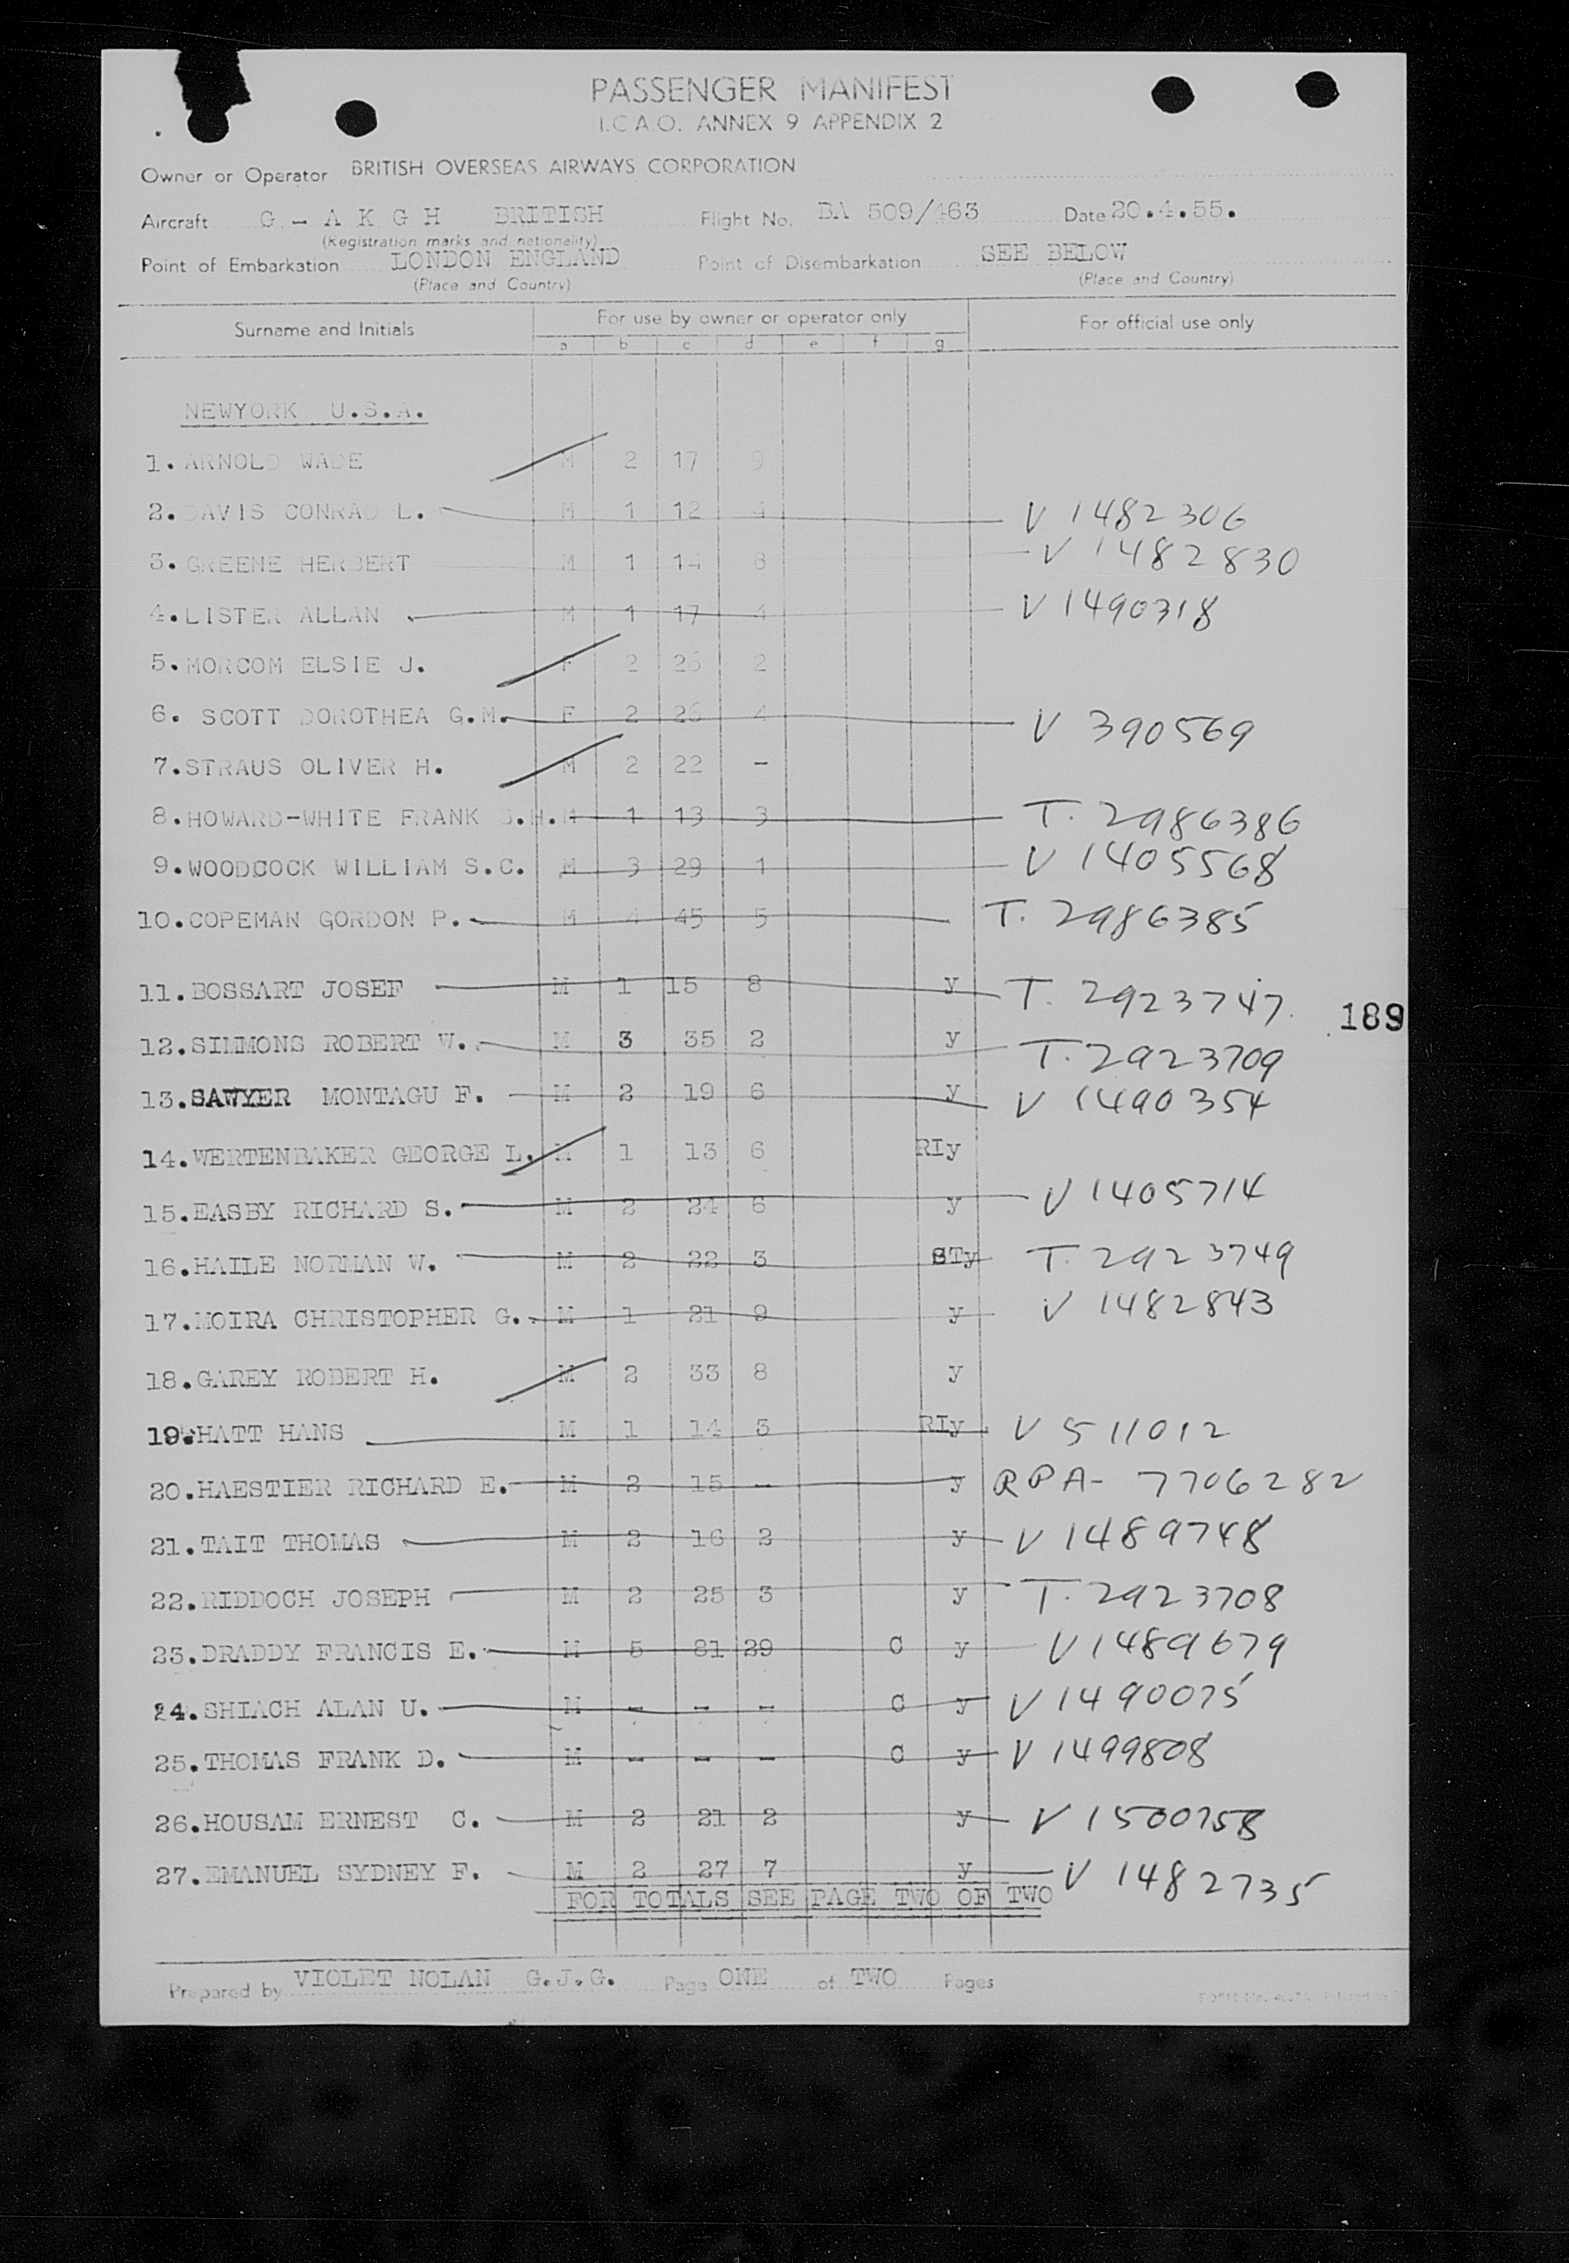 PASSENGER MANIFEST
I.C.A.O. ANNEX 9 APPENDIX 2
Owner or Operator BRITISH OVERSEAS AIRWAYS CORPORATION
Aircraft G - A K G H BRITISH Flight No. BA 509/463 Date 20.4.55.
(Registration marks and nationality)
Point of Embarkation LONDON ENGLAND Point of Disembarkation SEE BELOW
(Place and Country) (Place and Country)
Surname and Initials For use by owner or operator only For official use only
a b c d e f g
NEWYORK U.S.A.
1. ARNOLD WADE M 2 17 9
2. DAVIS CONRAD L. M 1 12 4 V 1482306
3. GREENE HERBERT M 1 14 8 V 1482830
4. LISTER ALLAN M 1 17 4 V 1490318
5. MORCOM ELSIE J. F 2 26 2
6. SCOTT DOROTHEA G.M. F 2 26 4 V 390569
7. STRAUS OLIVER H. M 2 22 -
8. HOWARD-WHITE FRANK B.H. M 1 13 3 T. 2986386
9. WOODCOCK WILLIAM S.C. M 3 29 1 V 1405568
10. COPEMAN GORDON P. M 4 45 5 T. 2986385
11. BOSSART JOSEF M 1 15 8 y T. 2923747
189
12. SIMMONS ROBERT W. M 3 35 2 y T. 2923709
13. SAWYER MONTAGU F. M 2 19 6 y V 1490354
14. WERTENBAKER GEORGE L. M 1 13 6 RIy
15. EASBY RICHARD S. M 2 24 6 y V 1405714
16. HAILE NORMAN W. M 2 22 3 STy T. 2923749
17. MOIRA CHRISTOPHER G. M 1 21 9 y V 1482843
18. GAREY ROBERT H. M 2 33 8 y
19. HATT HANS M 1 14 3 RIy V 511012
20. HAESTIER RICHARD E. M 2 15 - y RPA- 7706282
21. TAIT THOMAS M 2 16 2 y V 1489748
22. RIDDOCH JOSEPH M 2 25 3 y T. 2923708
23. DRADDY FRANCIS E. M 5 81 29 C y V 1489679
24. SHIACH ALAN U. M - - - C y V 1490075
25. THOMAS FRANK D. M - - - C y V 1499808
26. HOUSAM ERNEST C. M 2 21 2 y V 1500758
27. EMANUEL SYDNEY F. M 2 27 7 y V 1482735
FOR TOTALS SEE PAGE TWO OF TWO
Prepared by VIOLET NOLAN G.J.G. Page ONE of TWO Pages